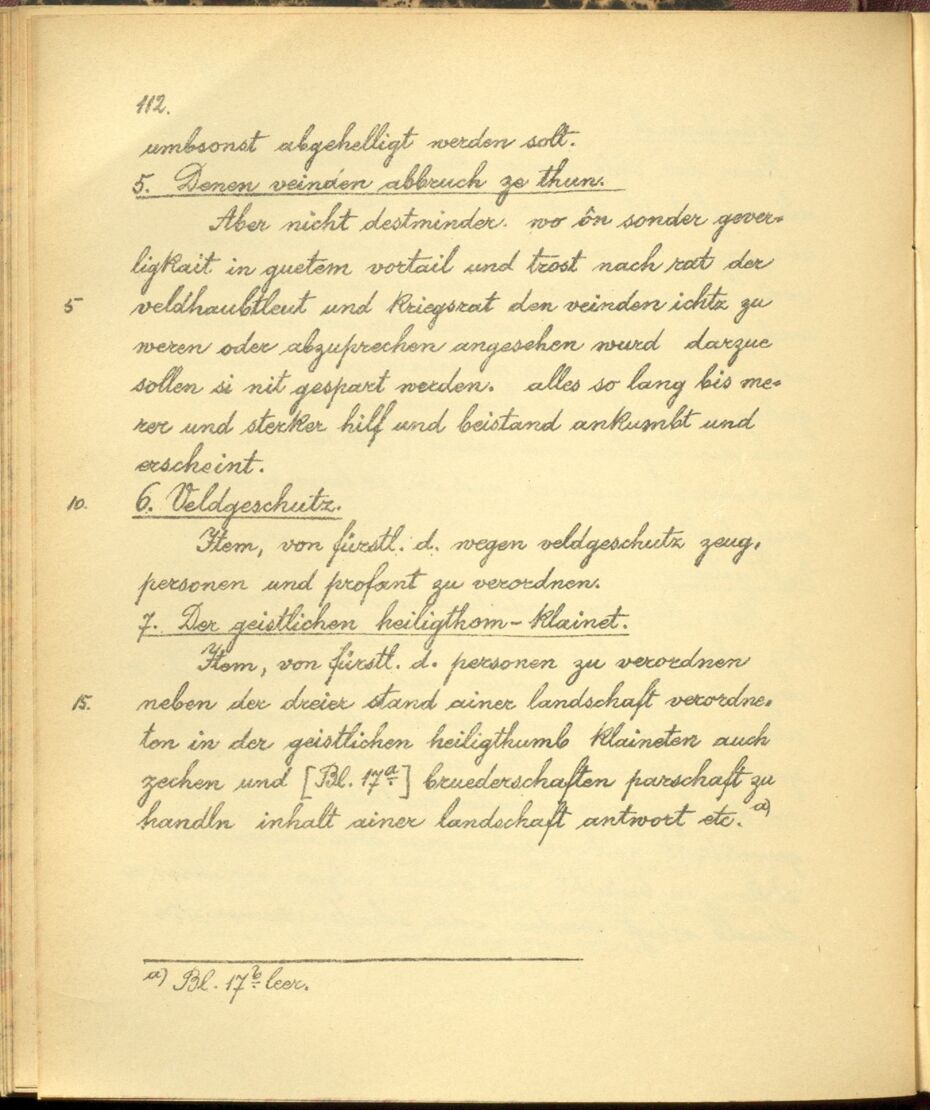 112.
umbsonst abgehelligt werden solt.
5. Denen veinden abbruch ze thun.
Aber nicht destminder. wo ôn sonder gever=
ligkait in guetem vortail und trost nach rat der
5 veldhaubtleut und kriegsrat den veinden ichtz zu
weren oder abzuprechen angesehen wurd darzue
sollen si nit gespart werden. alles so lang bis me=
rer und sterker hilf und beistand ankumbt und
erscheint.
10. 6. Veldgeschutz.
Item, von fürstl. d. wegen veldgeschutz zeug,
personen und profant zu verordnen.
7. Der geistlichen heiligthom-klainet.
Item, von fürstl. d. personen zu verordnen
15. neben der dreier stand ainer landschaft verordne=
ton in der geistlichen heiligthumb klaineten auch
zechen und [Bl. 17a] bruederschaften parschaft zu
handln inhalt ainer landschaft antwort etc. a)
a) Bl. 17b leer.